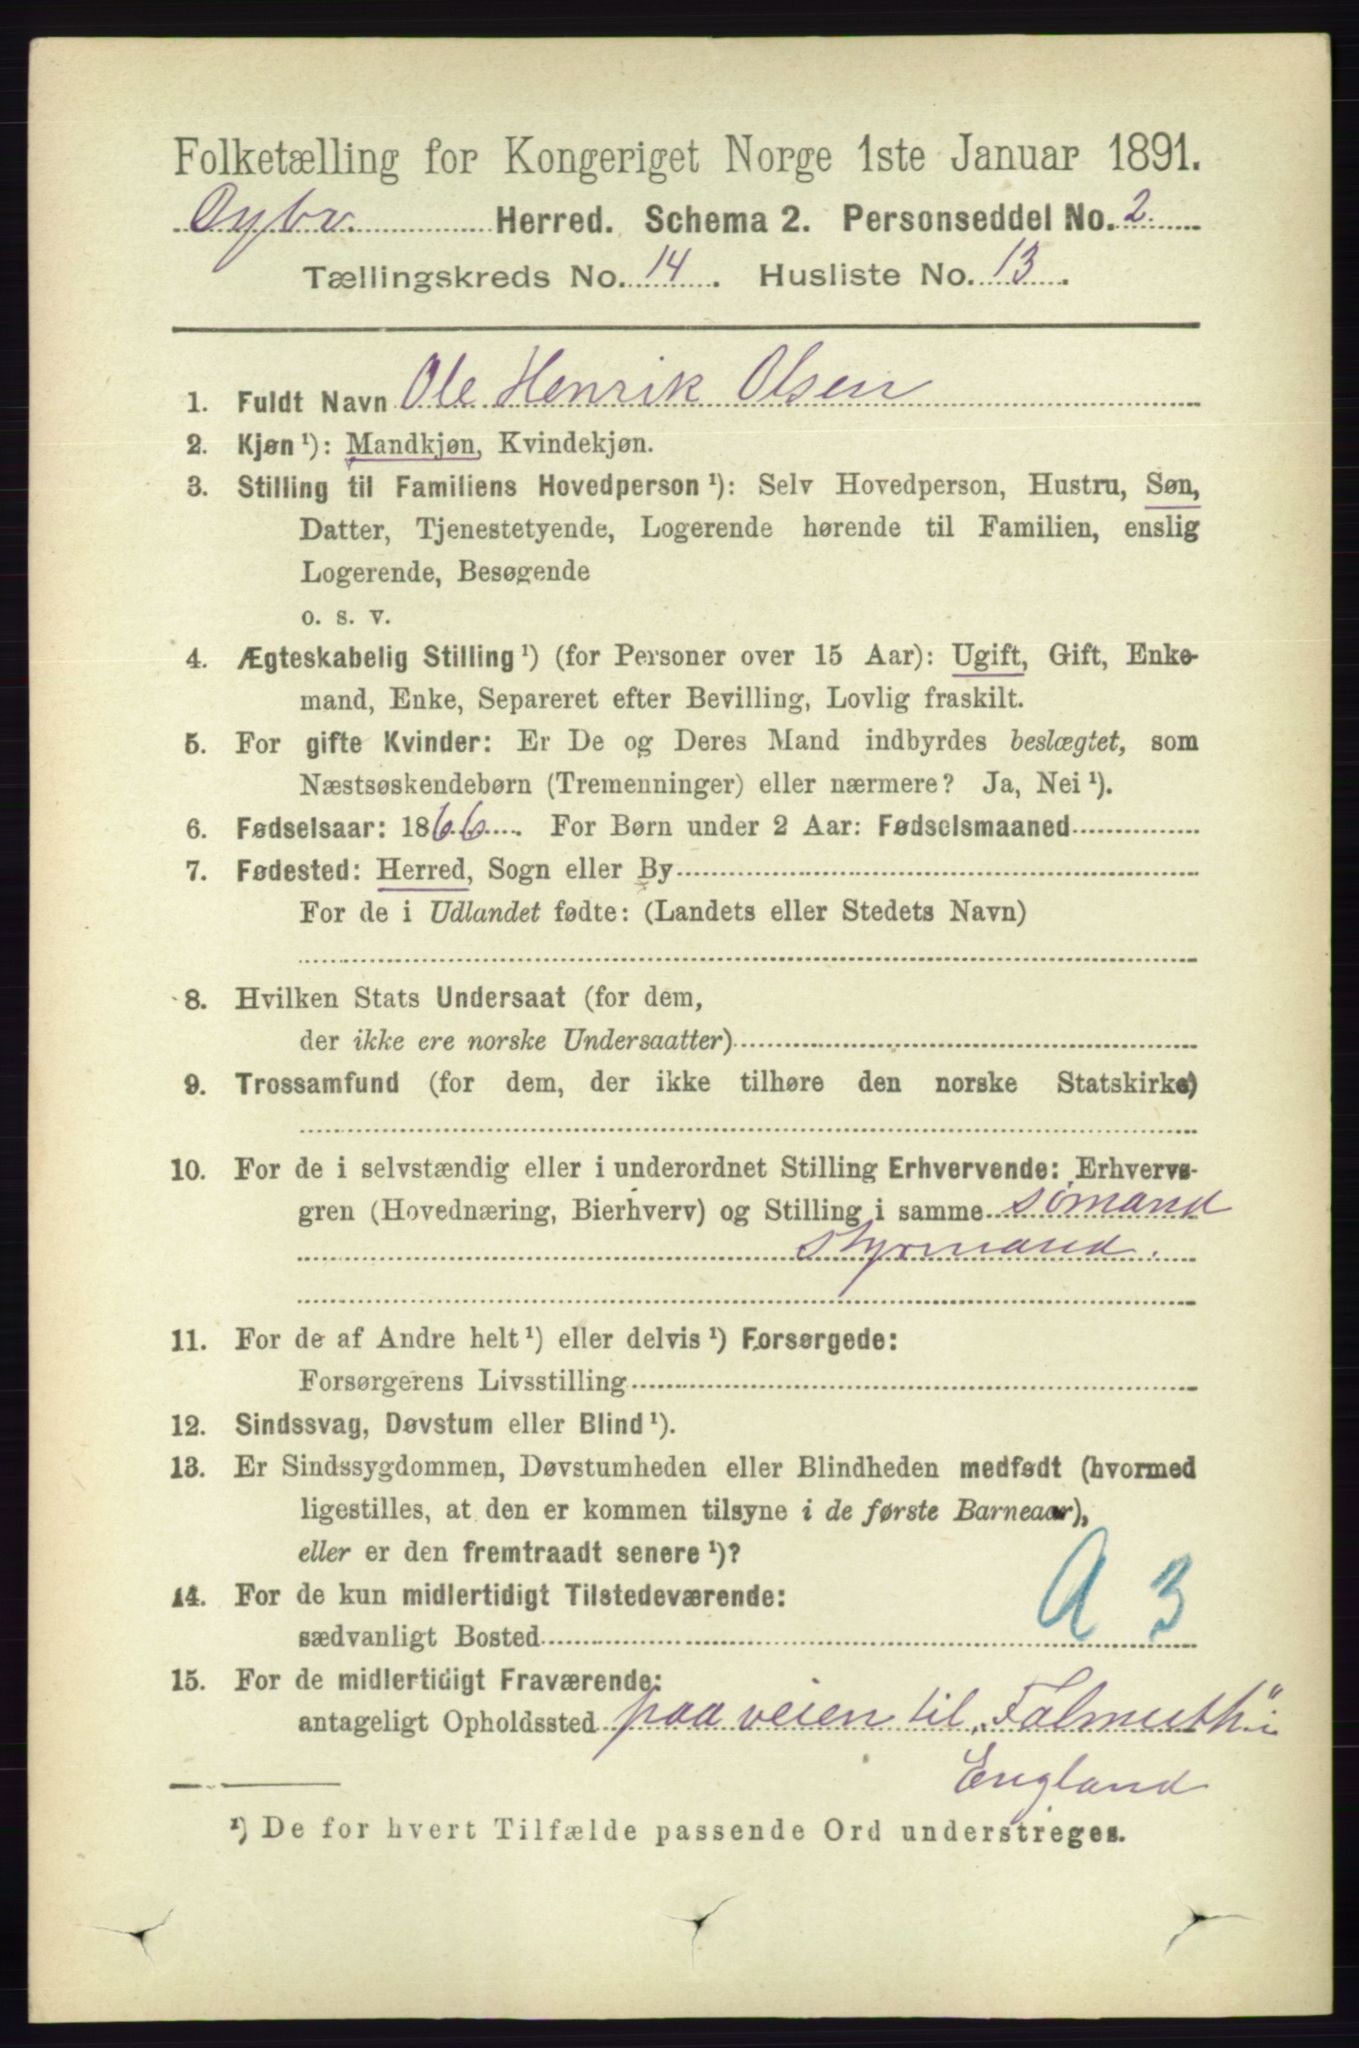 Folketælling for Kongeriget Norge 1ste Januar 1891.
Herred. Schema 2. Personseddel No. 2.
Tællingskreds No. 14. Husliste No. 13.
1. Fuldt Navn Ole Henrik Olsen
2. Kjøn ¹): Mandkjøn, Kvindekjøn.
3. Stilling til Familiens Hovedperson ¹): Selv Hovedperson, Hustru, Søn,
Datter, Tjenestetyende, Logerende hørende til Familien, enslig
Logerende, Besøgende
o. s. v.
4. Ægteskabelig Stilling ¹) (for Personer over 15 Aar): Ugift, Gift, Enke-
mand, Enke, Separeret efter Bevilling, Lovlig fraskilt.
5. For gifte Kvinder: Er De og Deres Mand indbyrdes beslægtet, som
Næstsøskendebørn (Tremenninger) eller nærmere? Ja, Nei ¹).
6. Fødselsaar: 1866. For Børn under 2 Aar: Fødselsmaaned
7. Fødested: Herred, Sogn eller By
For de i Udlandet fødte: (Landets eller Stedets Navn)
8. Hvilken Stats Undersaat (for dem,
der ikke ere norske Undersaatter)
9. Trossamfund (for dem, der ikke tilhøre den norske Statskirke)
10. For de i selvstændig eller i underordnet Stilling Erhvervende: Erhvervs-
gren (Hovednæring, Bierhverv) og Stilling i samme sømand
styrmand.
11. For de af Andre helt ¹) eller delvis ¹) Forsørgede:
Forsørgerens Livsstilling
12. Sindssvag, Døvstum eller Blind ¹).
13. Er Sindssygdommen, Døvstumheden eller Blindheden medfødt (hvormed
ligestilles, at den er kommen tilsyne i de første Barneaar),
eller er den fremtraadt senere ¹)?
14. For de kun midlertidigt Tilstedeværende:
sædvanligt Bosted
A 3
15. For de midlertidigt Fraværende:
antageligt Opholdssted paa veien til „Falmuth" i
England
¹) De for hvert Tilfælde passende Ord understreges.